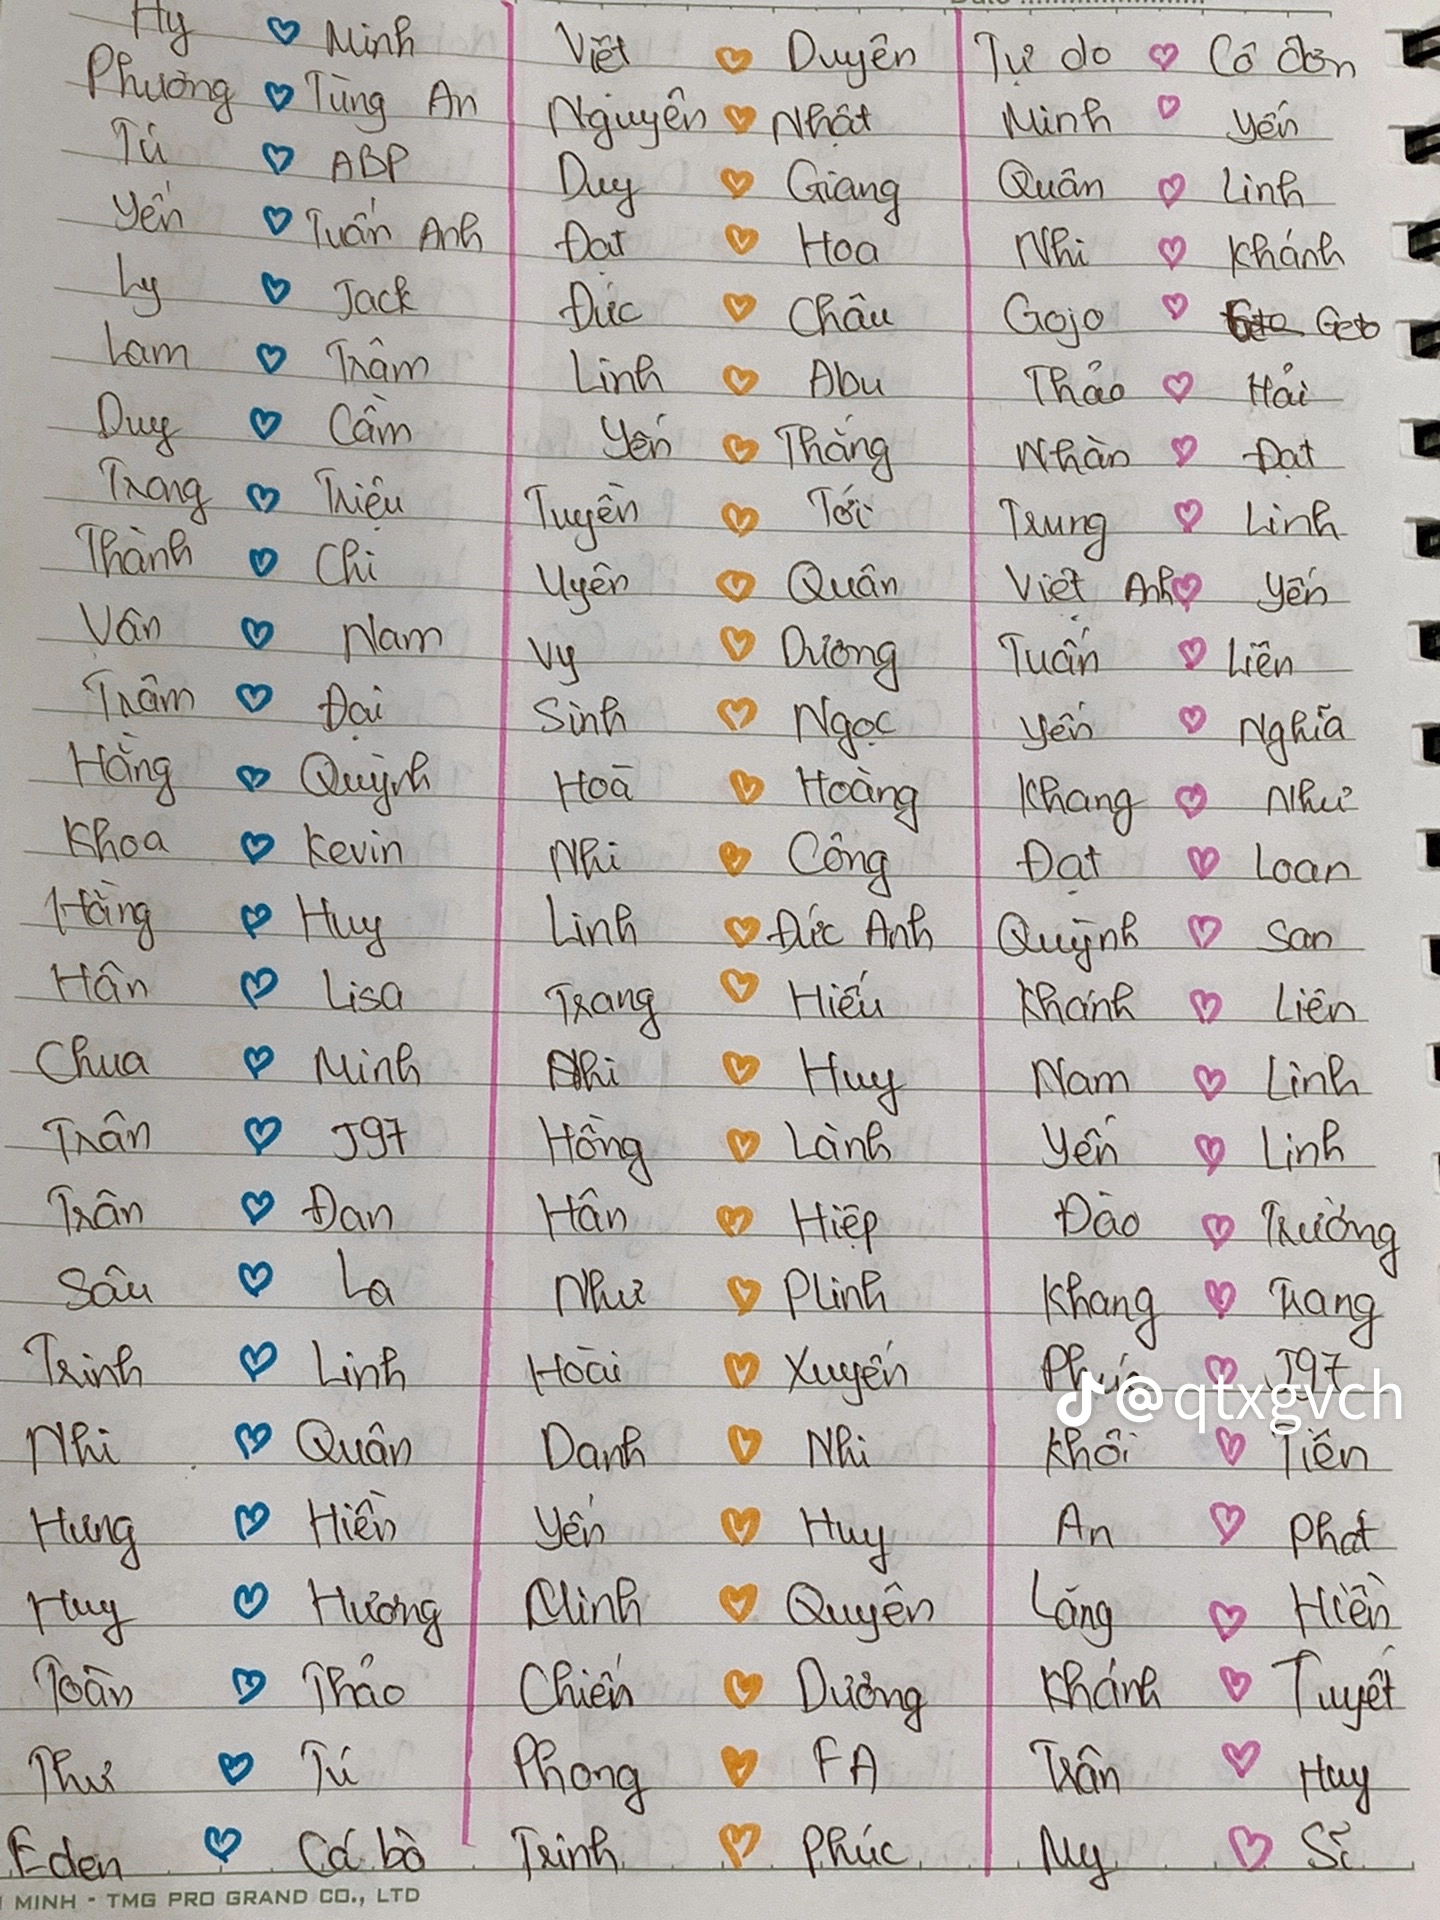 Hy ♡ Minh
Phương ♡ Tùng An
Tú ♡ ABP
Yến ♡ Tuấn Anh
Ly ♡ Jack
Lam ♡ Trâm
Duy ♡ Cầm
Trang ♡ Triệu
Thành ♡ Chi
Vân ♡ Nam
Trâm ♡ Đại
Hằng ♡ Quỳnh
Khoa ♡ Kevin
Hằng ♡ Huy
Hân ♡ Lisa
Chua ♡ Minh
Trân ♡ J97
Trân ♡ Đan
Sâu ♡ La
Trinh ♡ Linh
Nhi ♡ Quân
Hưng ♡ Hiền
Huy ♡ Hương
Toàn ♡ Thảo
Thư ♡ Tú
Eden ♡ Cá bò
Việt ♡ Duyên
Nguyên ♡ Nhật
Duy ♡ Giang
Đạt ♡ Hoa
Đức ♡ Châu
Linh ♡ Abu
Yến ♡ Thắng
Tuyền ♡ Tới
Uyên ♡ Quân
Vy ♡ Dương
Sinh ♡ Ngọc
Hoà ♡ Hoàng
Nhi ♡ Công
Linh ♡ Đức Anh
Trang ♡ Hiếu
Nhi ♡ Huy
Hồng ♡ Lành
Hân ♡ Hiệp
Như ♡ PLinh
Hoài ♡ Xuyến
Danh ♡ Nhi
Yến ♡ Huy
Minh ♡ Quyên
Chiến ♡ Dương
Phong ♡ FA
Trinh ♡ Phúc
Tự do ♡ Cô đơn
Minh ♡ Yến
Quân ♡ Linh
Nhi ♡ Khánh
Gojo ♡ Geto
Thảo ♡ Hải
Nhàn ♡ Đạt
Trung ♡ Linh
Việt Anh ♡ Yến
Tuấn ♡ Liên
Yến ♡ Nghĩa
Khang ♡ Như
Đạt ♡ Loan
Quỳnh ♡ San
Khánh ♡ Liên
Nam ♡ Linh
Yến ♡ Linh
Đào ♡ Trường
Khang ♡ Trang
Phúc ♡ J97
@qtxgvch
Khôi ♡ Tiên
An ♡ Phát
Lăng ♡ Hiền
Khánh ♡ Tuyết
Trân ♡ Huy
My ♡ Sĩ
MINH - TMG PRO GRAND CO., LTD